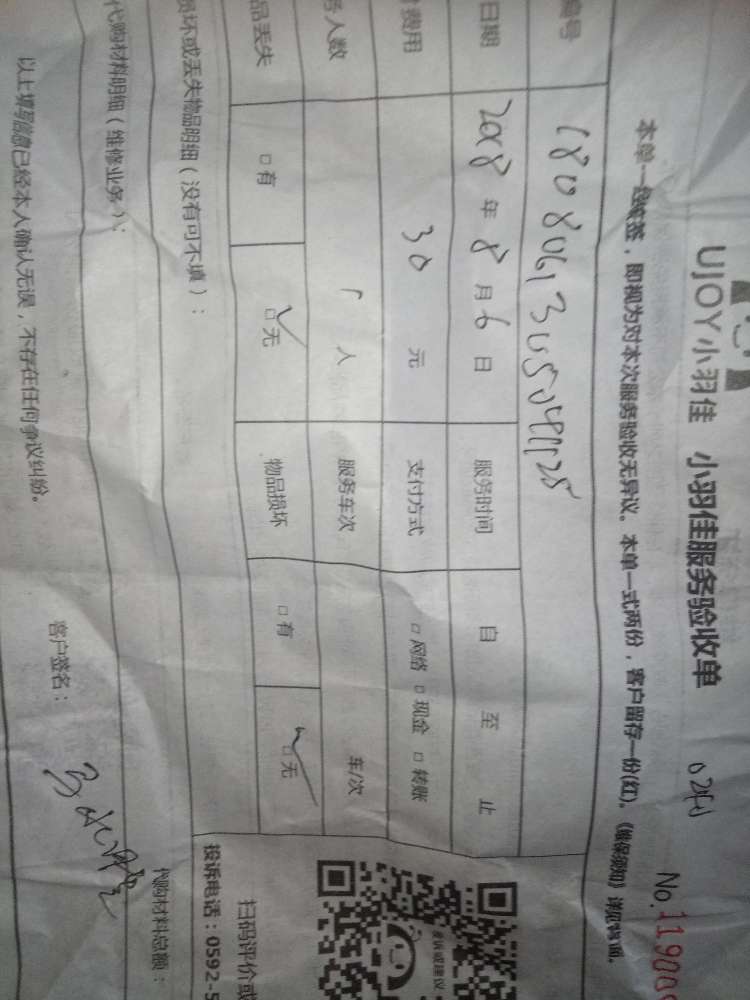 UJOY小羽佳 小羽佳服务验收单
No.11900
本单一经签, 即视为对本次服务验收无异议。本单一式两份, 客户留存一份(红)。《维保须知》详见背面。
编号
日期 2018 年 8 月 6 日 服务时间 自 至 止
费用 30 元 支付方式 □ 网络 □ 现金 □ 转账
务人数 1 人 服务车次 车/次
品丢失 □ 有 ☑ 无 物品损坏 □ 有 ☑ 无
损坏或丢失物品明细(没有可不填):
代购材料明细(维修业务): 代购材料总额:
以上填写信息已经本人确认无误, 不存在任何争议纠纷。 客户签名:
投诉或建议
扫码评价或
投诉电话:0592-5